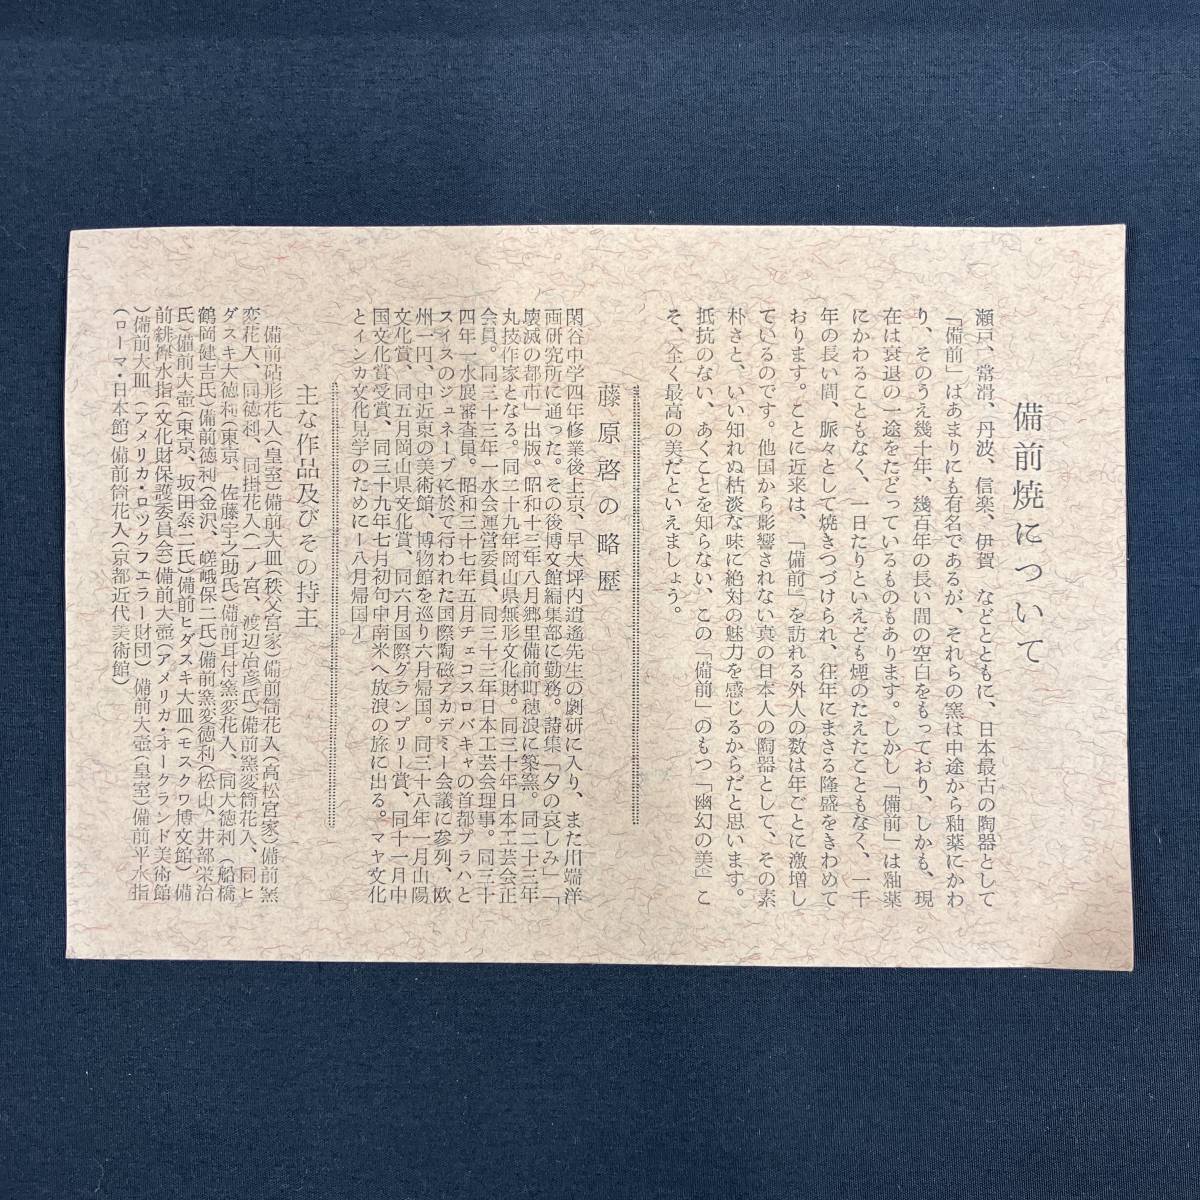 備前焼について
瀬戸、常滑、丹波、信楽、伊賀　などとともに、日本最古の陶器として
「備前」はあまりにも有名であるが、それらの窯は中途から釉薬にかわ
り、そのうえ幾十年、幾百年の長い間の空白をもっており、しかも、現
在は衰退の一途をたどっているものもあります。しかし「備前」は釉薬
にかわることもなく、一日たりといえども煙のたえたこともなく、一千
年の長い間、脈々として焼きつづけられ、往年にまさる隆盛をきわめて
おります。ことに近来は、「備前」を訪れる外人の数は年ごとに激増し
ているのです。他国から影響されない真の日本人の陶器として、その素
朴さと、いい知れぬ枯淡な味に絶対の魅力を感じるからだと思います。
抵抗のない、あくことを知らない、この「備前」のもつ「幽幻の美」こ
そ、全く最高の美だといえましょう。
藤原啓の略歴
閑谷中学四年修業後上京、早大坪内逍遙先生の劇研に入り、また川端洋
画研究所に通った。その後博文館編集部に勤務。詩集「夕の哀しみ」「
壊滅の都市」出版。昭和十三年八月郷里備前町穂浪に築窯。同二十三年
丸技作家となる。同二十九年岡山県無形文化財。同三十年日本工芸会正
会員。同三十三年一水会運営委員、同三十三年日本工芸会理事。同三十
四年一水展審査員。昭和三十七年五月チェコスロバキャの首都プラハと
スイスのジュネーブに於て行われた国際陶磁アカデミー会議に参列、欧
州一円、中近東の美術館、博物館を巡り六月帰国。同三十八年一月山陽
文化賞、同五月岡山県文化賞、同六月国際グランプリー賞、同十一月中
国文化賞受賞、同三十九年七月初旬中南米へ放浪の旅に出る。マヤ文化
とインカ文化見学のために―八月帰国―。
主な作品及びその持主
備前砧形花入(皇室)備前大皿(秩父宮家)備前筒花入(高松宮家)備前窯
変花入、同徳利、同掛花入(一ノ宮、渡辺治彦氏)備前窯変筒花入、同ヒ
ダスキ大徳利(東京、佐藤宇之助氏)備前耳付窯変花入、同大徳利(船橋
鶴岡健吉氏)備前徳利(金沢、嵯峨保二氏)備前窯変徳利(松山、井部栄治
氏)備前大壺(東京、坂田泰二氏)備前ヒダスキ大皿(モスクワ博文館)備
前緋襷水指(文化財保護委員会)備前大壺(アメリカ・オークランド美術館
)備前大皿(アメリカ・ロックフエラー財団)備前大壺(皇室)備前平水指
(ローマ・日本館)備前筒花入(京都近代美術館)